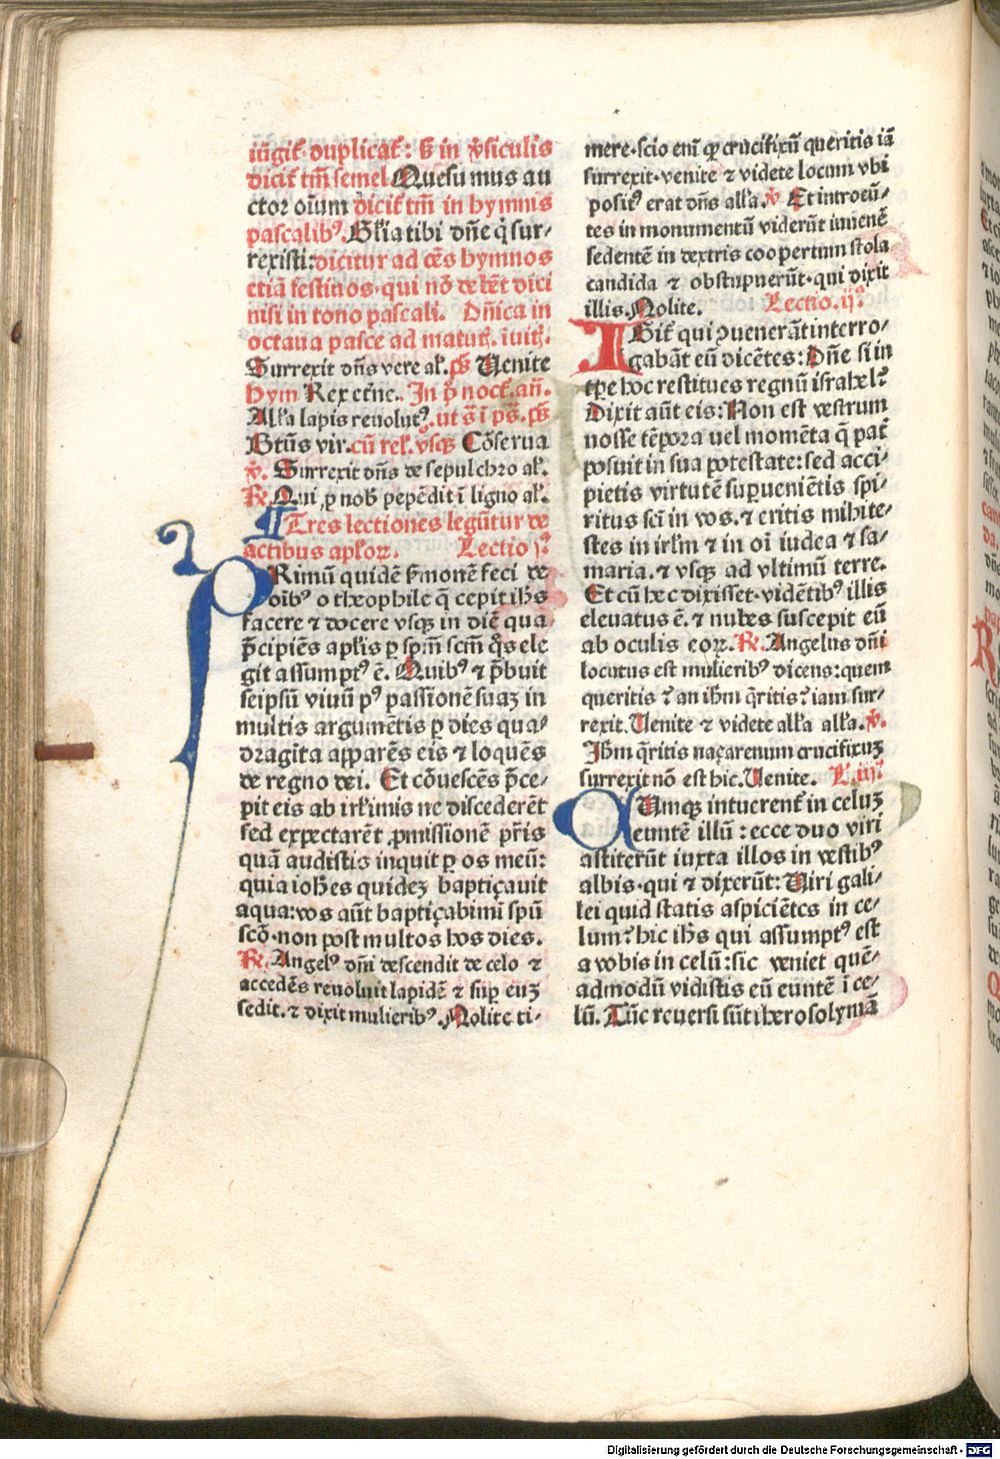 iũgit᷑. duplicat᷑: s̄ in v̄siculis
dicit᷑ tm̄ semel. Quesumus au
ctor oīum dicit᷑ tm̄ in hymnis
pascalibꝰ. Gl̄ia tibi dn̄e q̇ sur-
rexisti: dicitur ad oēs hymnos
etiā festiuos. qui nō debēt dici
nisi in tono pascali. Dn̄ica in
octaua pasce ad matut̄. īuit̄.
Surrexit dn̄s vere al̄. ps̄ Uenite
hym Rex et̄ne. In p̄ noct̄. an̄.
All̄a lapis reuolutꝰ. ut s̄ ī ps̄. ps̄
Btūs vir. cū rel̄. vsqꝫ Cōserua
v̄. Surrexit dn̄s de sepulchro al̄.
R̄. Qui ꝓ nob̄ pepēdit ī ligno al̄.
¶ Tres lectiones legūtur de
actibus apl̄oꝝ. Lectio j.ᵃ
PRimū quidē s̄monē feci de
oībꝰ o theophile q̄ cepit ih̄s
facere ⁊ docere vsqꝫ in diē qua
p̄cipiēs apl̄is ꝑ sp̄m̄ scm̄ q̊s ele
git assumptꝰ ē. Quibꝰ ⁊ p̄buit
seipsū viuū pꝰ passionē suaꝫ in
multis argumētis ꝑ dies qua-
dragīta apparēs eis ⁊ loquēs
de regno dei. Et cōuescēs p̄ce-
pit eis ab irl̄imis ne discederēt
sed expectarēt ꝓmissionē p̄ris
quā audistis inquit ꝑ os meū:
quia ioh̄es quideꝫ baptiçauit
aqua: vos aūt baptiçabimī sp̄ū
scō. non post multos hos dies.
R̄. Angelꝰ dn̄i descendit de celo ⁊
accedēs reuoluit lapidē ⁊ suꝑ euꝫ
sedit. ⁊ dixit mulieribꝰ. Nolite ti-
mere. scio enī ꝙ crucifixū queritis iā
surrexit. venite ⁊ videte locum vbi
positꝰ erat dn̄s all̄a. v̄ Et introeū-
tes in monumentū viderūt iuuenē
sedentē in dextris coopertum stola
candida ⁊ obstupuerūt. qui dixit
illis. Nolite. Lectio. ij.ᵃ
IGit᷑ qui ꝯuenerāt interro-
gabāt eū dicētes: Dn̄e si in
tp̄e hoc restitues regnū israhel?
Dixit aūt eis: Non est vestrum
nosse tēpora uel momēta q̄ pat̄
posuit in sua potestate: sed acci-
pietis virtutē suꝑueniētis spi-
ritus scī in vos. ⁊ eritis mihi te-
stes in irl̄m ⁊ in oī iudea ⁊ sa-
maria. ⁊ vsqꝫ ad vltimū terre.
Et cū hec dixisset. vidētibꝰ illis
eleuatus ē. ⁊ nubes suscepit eū
ab oculis eoꝝ. R̄. Angelus dn̄i
locutus est mulieribꝰ dicens: quem
queritis? an ih̄m q̄ritis? iam sur-
rexit. Uenite ⁊ videte all̄a all̄a. v̄.
Ih̄m q̄ritis naçarenum crucifixuꝫ
surrexit nō est hic. Uenite. L. iij.ᵃ
CUmqꝫ intuerent᷑ in celuꝫ
euntē illū: ecce duo viri
astiterūt iuxta illos in vestibꝰ
albis. qui ⁊ dixerūt: Uiri gali-
lei quid statis aspiciētes in ce-
lum? hic ih̄s qui assumptꝰ est
a vobis in celū: sic veniet quē-
admodū vidistis eū euntē ī ce-
lū. Tūc reuersi sūt iherosolymā
Digitalisierung gefördert durch die Deutsche Forschungsgemeinschaft - DFG